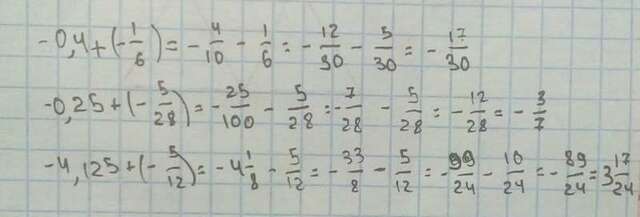 -0,4+(-1/6)=-4/10-1/6=-12/30-5/30=-17/30
-0,25+(-5/28)=-25/100-5/28=-7/28-5/28=-12/28=-3/7
-4,125+(-5/12)=-4 1/8-5/12=-33/8-5/12=-99/24-10/24=-89/24=3 17/24